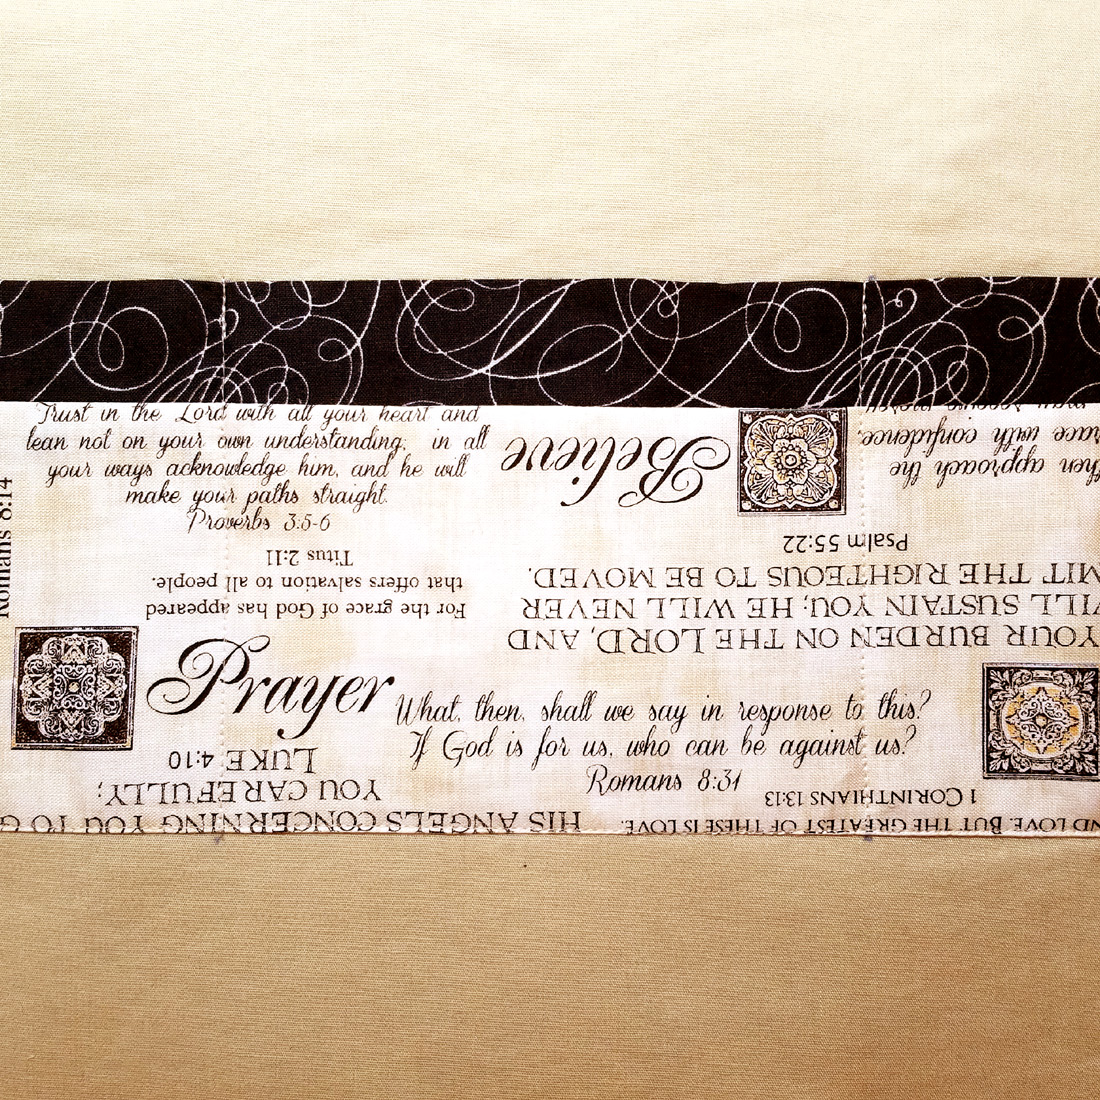 Trust in the Lord with all your heart and
lean not on your own understanding; in all
your ways acknowledge him, and he will
make your paths straight.
Proverbs 3:5-6
Believe
then approach the
race with confidence
may receive mercy
Romans 8:14
For the grace of God has appeared
that offers salvation to all people.
Titus 2:11
YOUR BURDEN ON THE LORD, AND
ILL SUSTAIN YOU; HE WILL NEVER
MIT THE RIGHTEOUS TO BE MOVED.
Psalm 55:22
Prayer
What, then, shall we say in response to this?
If God is for us, who can be against us?
Romans 8:31
HIS ANGELS CONCERNING YOU TO G
YOU CAREFULLY;
LUKE 4:10
ND LOVE. BUT THE GREATEST OF THESE IS LOVE.
1 CORINTHIANS 13:13